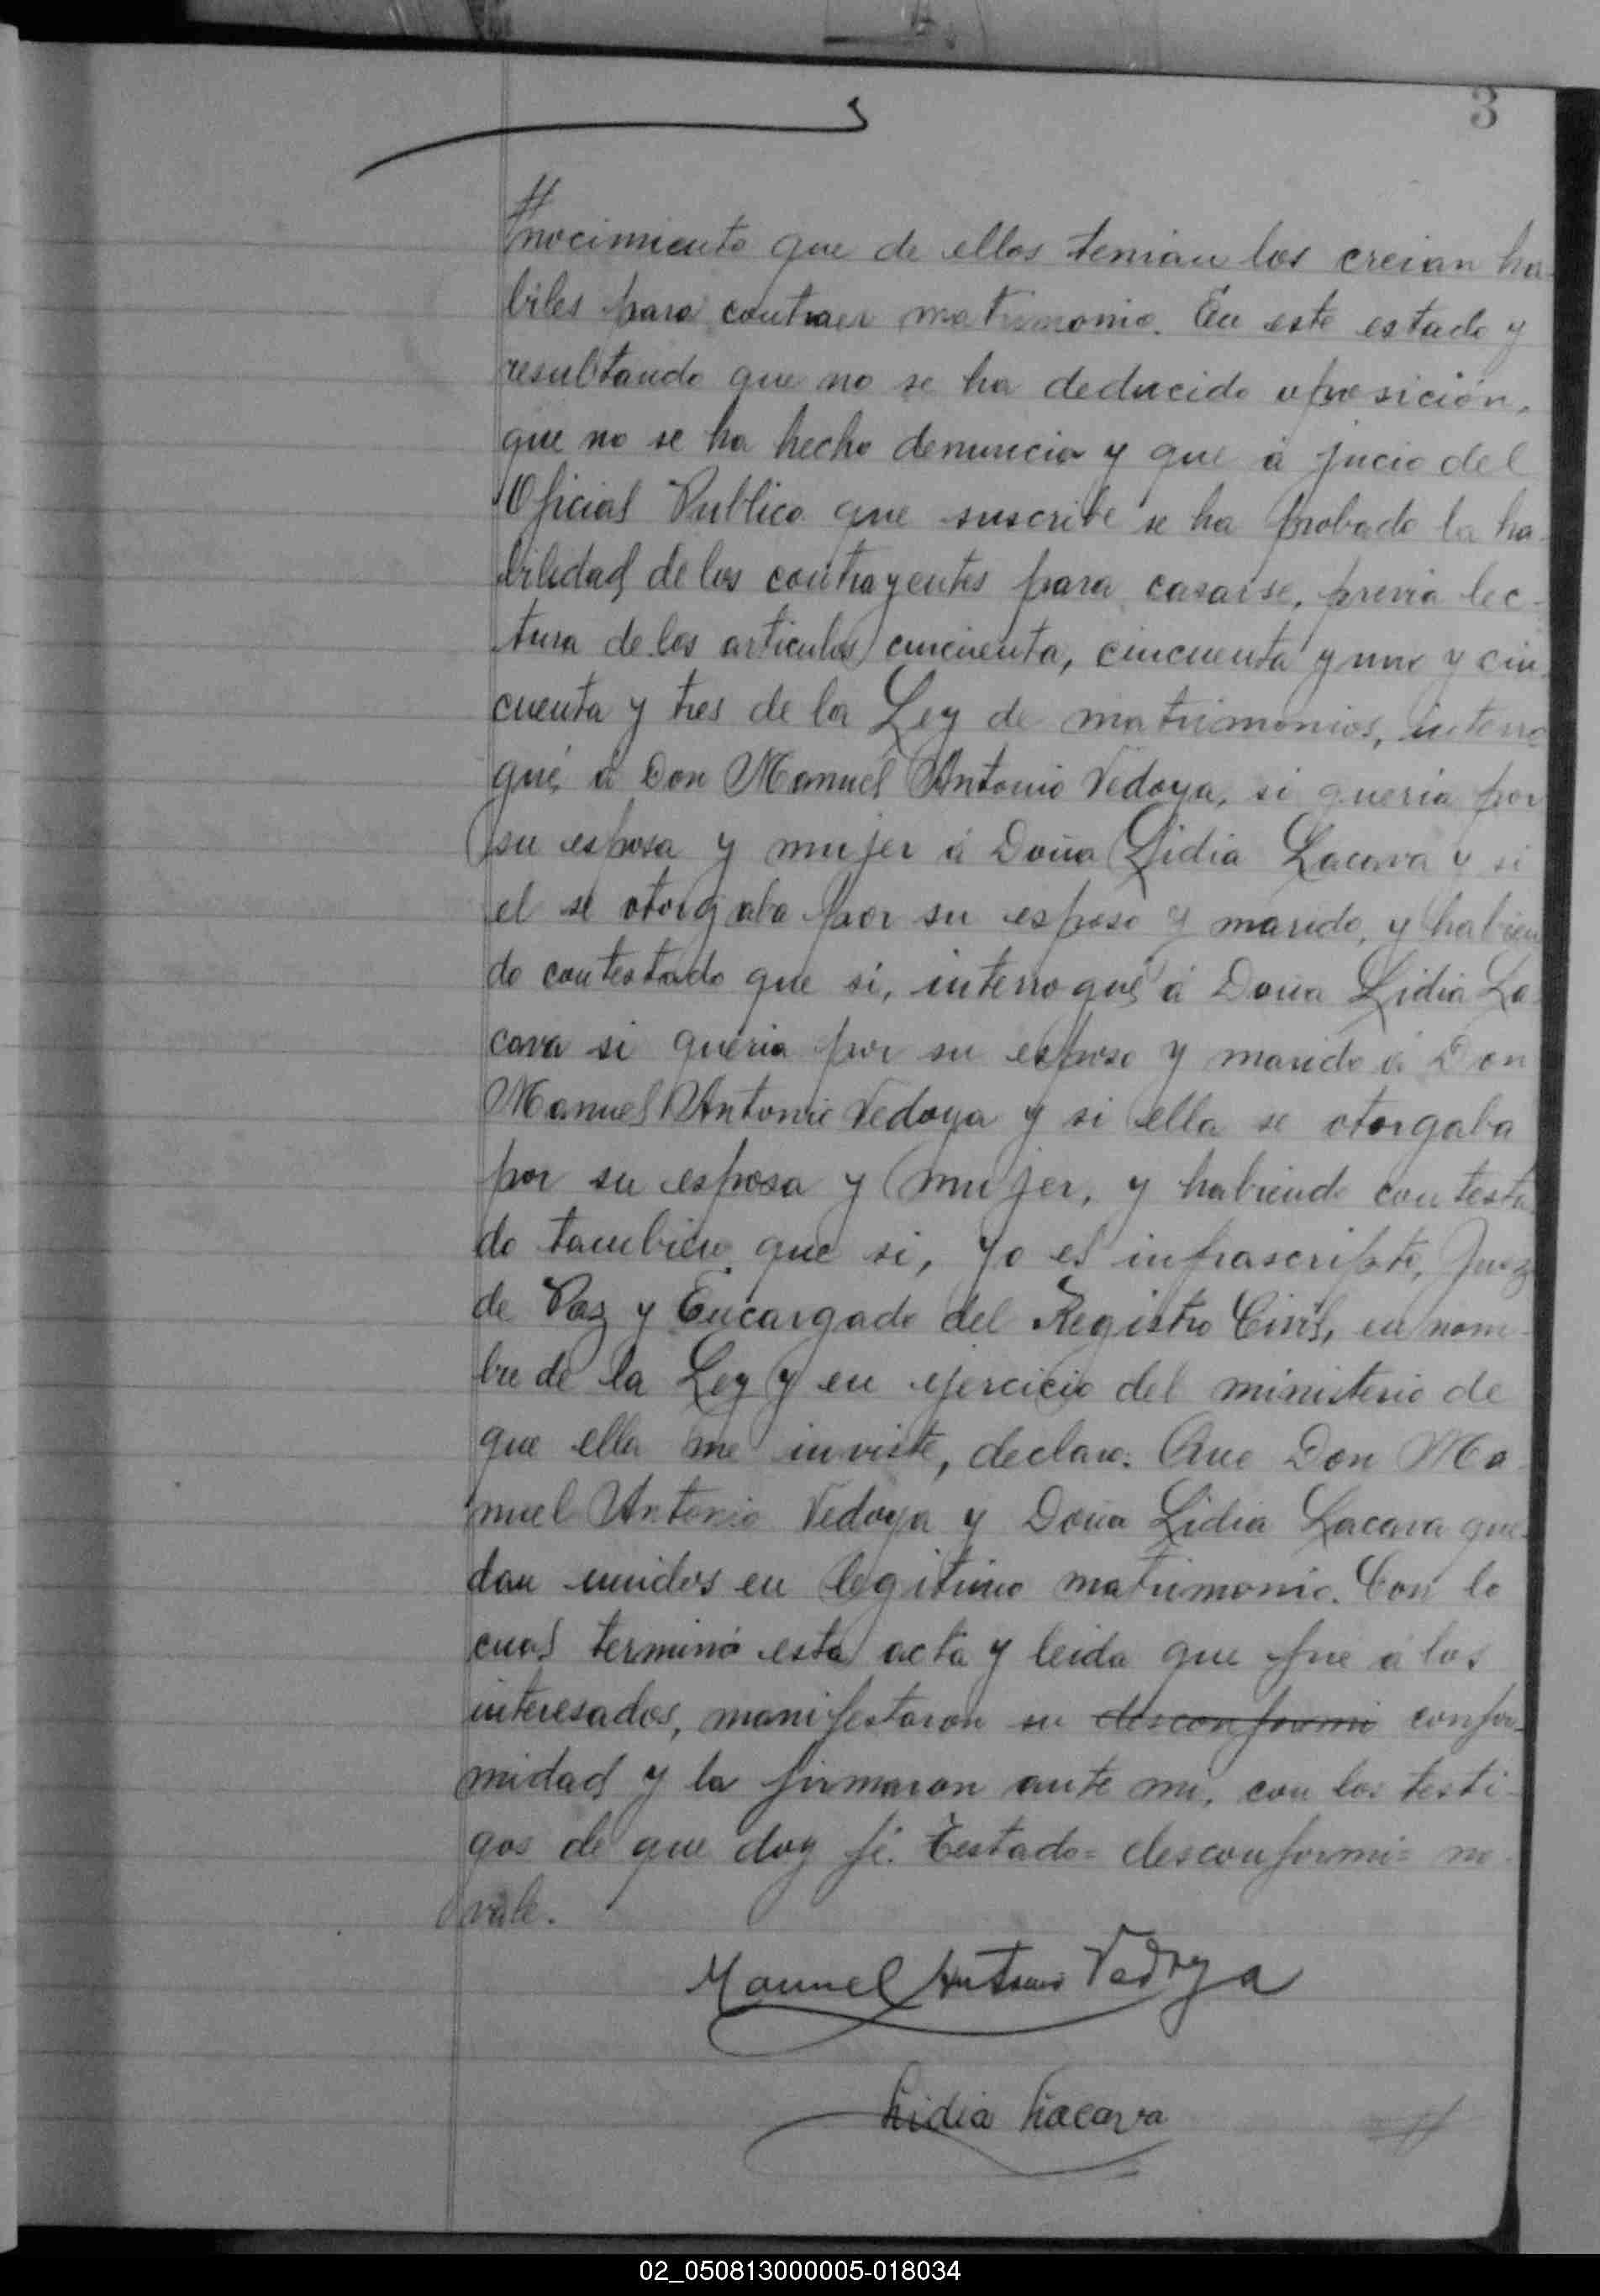 3
nocimiento que de ellos tenian los creian ha-
biles para contraer matrimonio. En este estado y
resultando que no se ha deducido oposición,
que no se ha hecho denuncia y que á jucio del
Oficial Publico que suscribe se ha probado la ha-
bilidad de los contrayentes para casarse, previa lec-
tura de los articulos cincuenta, cincuenta y uno y cin-
cuenta y tres de la Ley de matrimonios, interro
gué á Don Manuel Antonio Vedoya, si queria por
su esposa y mujer á Doña Lidia Lacava y si
el se otorgaba por su esposo y marido, y habien
do contestado que si, interrogué á Doña Lidia La-
cava si queria por su esposo y marido á Don
Manuel Antonio Vedoya y si ella se otorgaba
por su esposa y mujer, y habiendo contesta
do tambien que si, yo el infrascripto, Juez
de Paz y Encargado del Registro Civil, en nom-
bre de la Ley y en ejercicio del ministerio de
que ella me inviste, declaro: Que Don Ma-
nuel Antonio Vedoya y Doña Lidia Lacava que-
dan unidos en legitimo matrimonio. Con lo
cual terminó esta acta y leida que fué á los
interesados, manifestaron su desconformi confor-
midad y la firmaron ante mi, con los testi-
gos de que doy fé. Testado= desconformi= no
vale.
Manuel Antonio Vedoya
Lidia Lacava
02_050813000005-018034